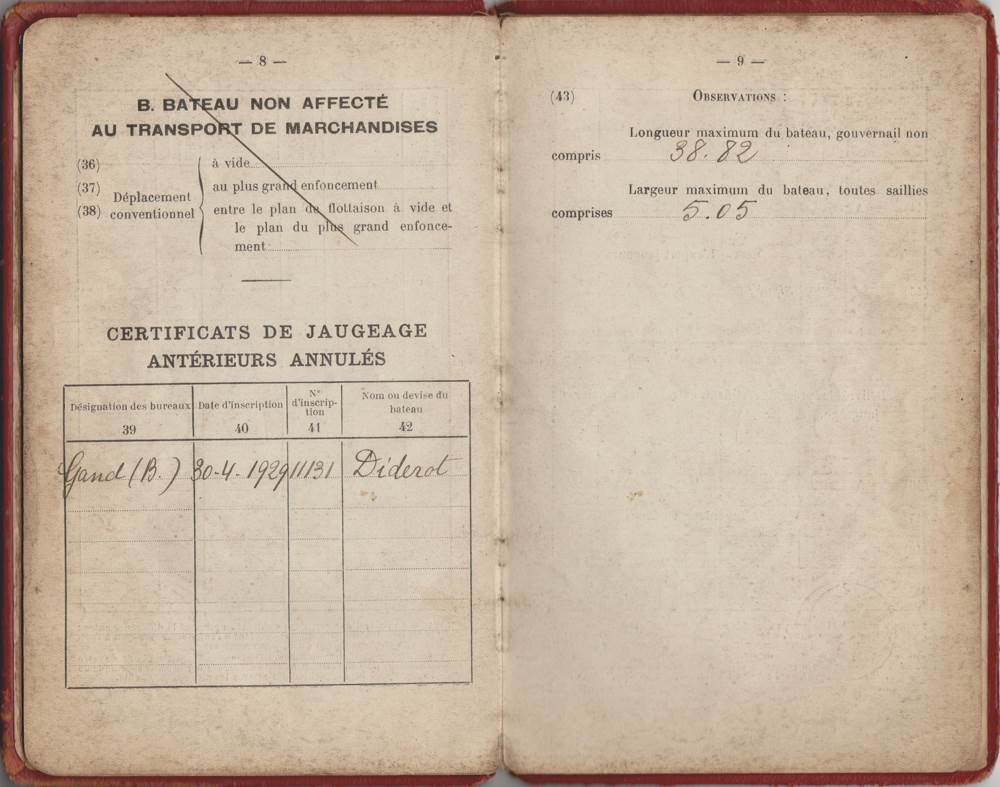 — 8 —
B. BATEAU NON AFFECTÉ
AU TRANSPORT DE MARCHANDISES
(36)
(37)
(38)
Déplacement
conventionnel
à vide
au plus grand enfoncement
entre le plan de flottaison à vide et
le plan du plus grand enfonce-
ment
CERTIFICATS DE JAUGEAGE
ANTÉRIEURS ANNULÉS
Désignation des bureaux
39
Date d'inscription
40
N°
d'inscrip-
tion
41
Nom ou devise du
bateau
42
Gand (B.) 30-4-1929 11131 Diderot
— 9 —
(43) OBSERVATIONS :
Longueur maximum du bateau, gouvernail non
compris 38.82
Largeur maximum du bateau, toutes saillies
comprises 5.05